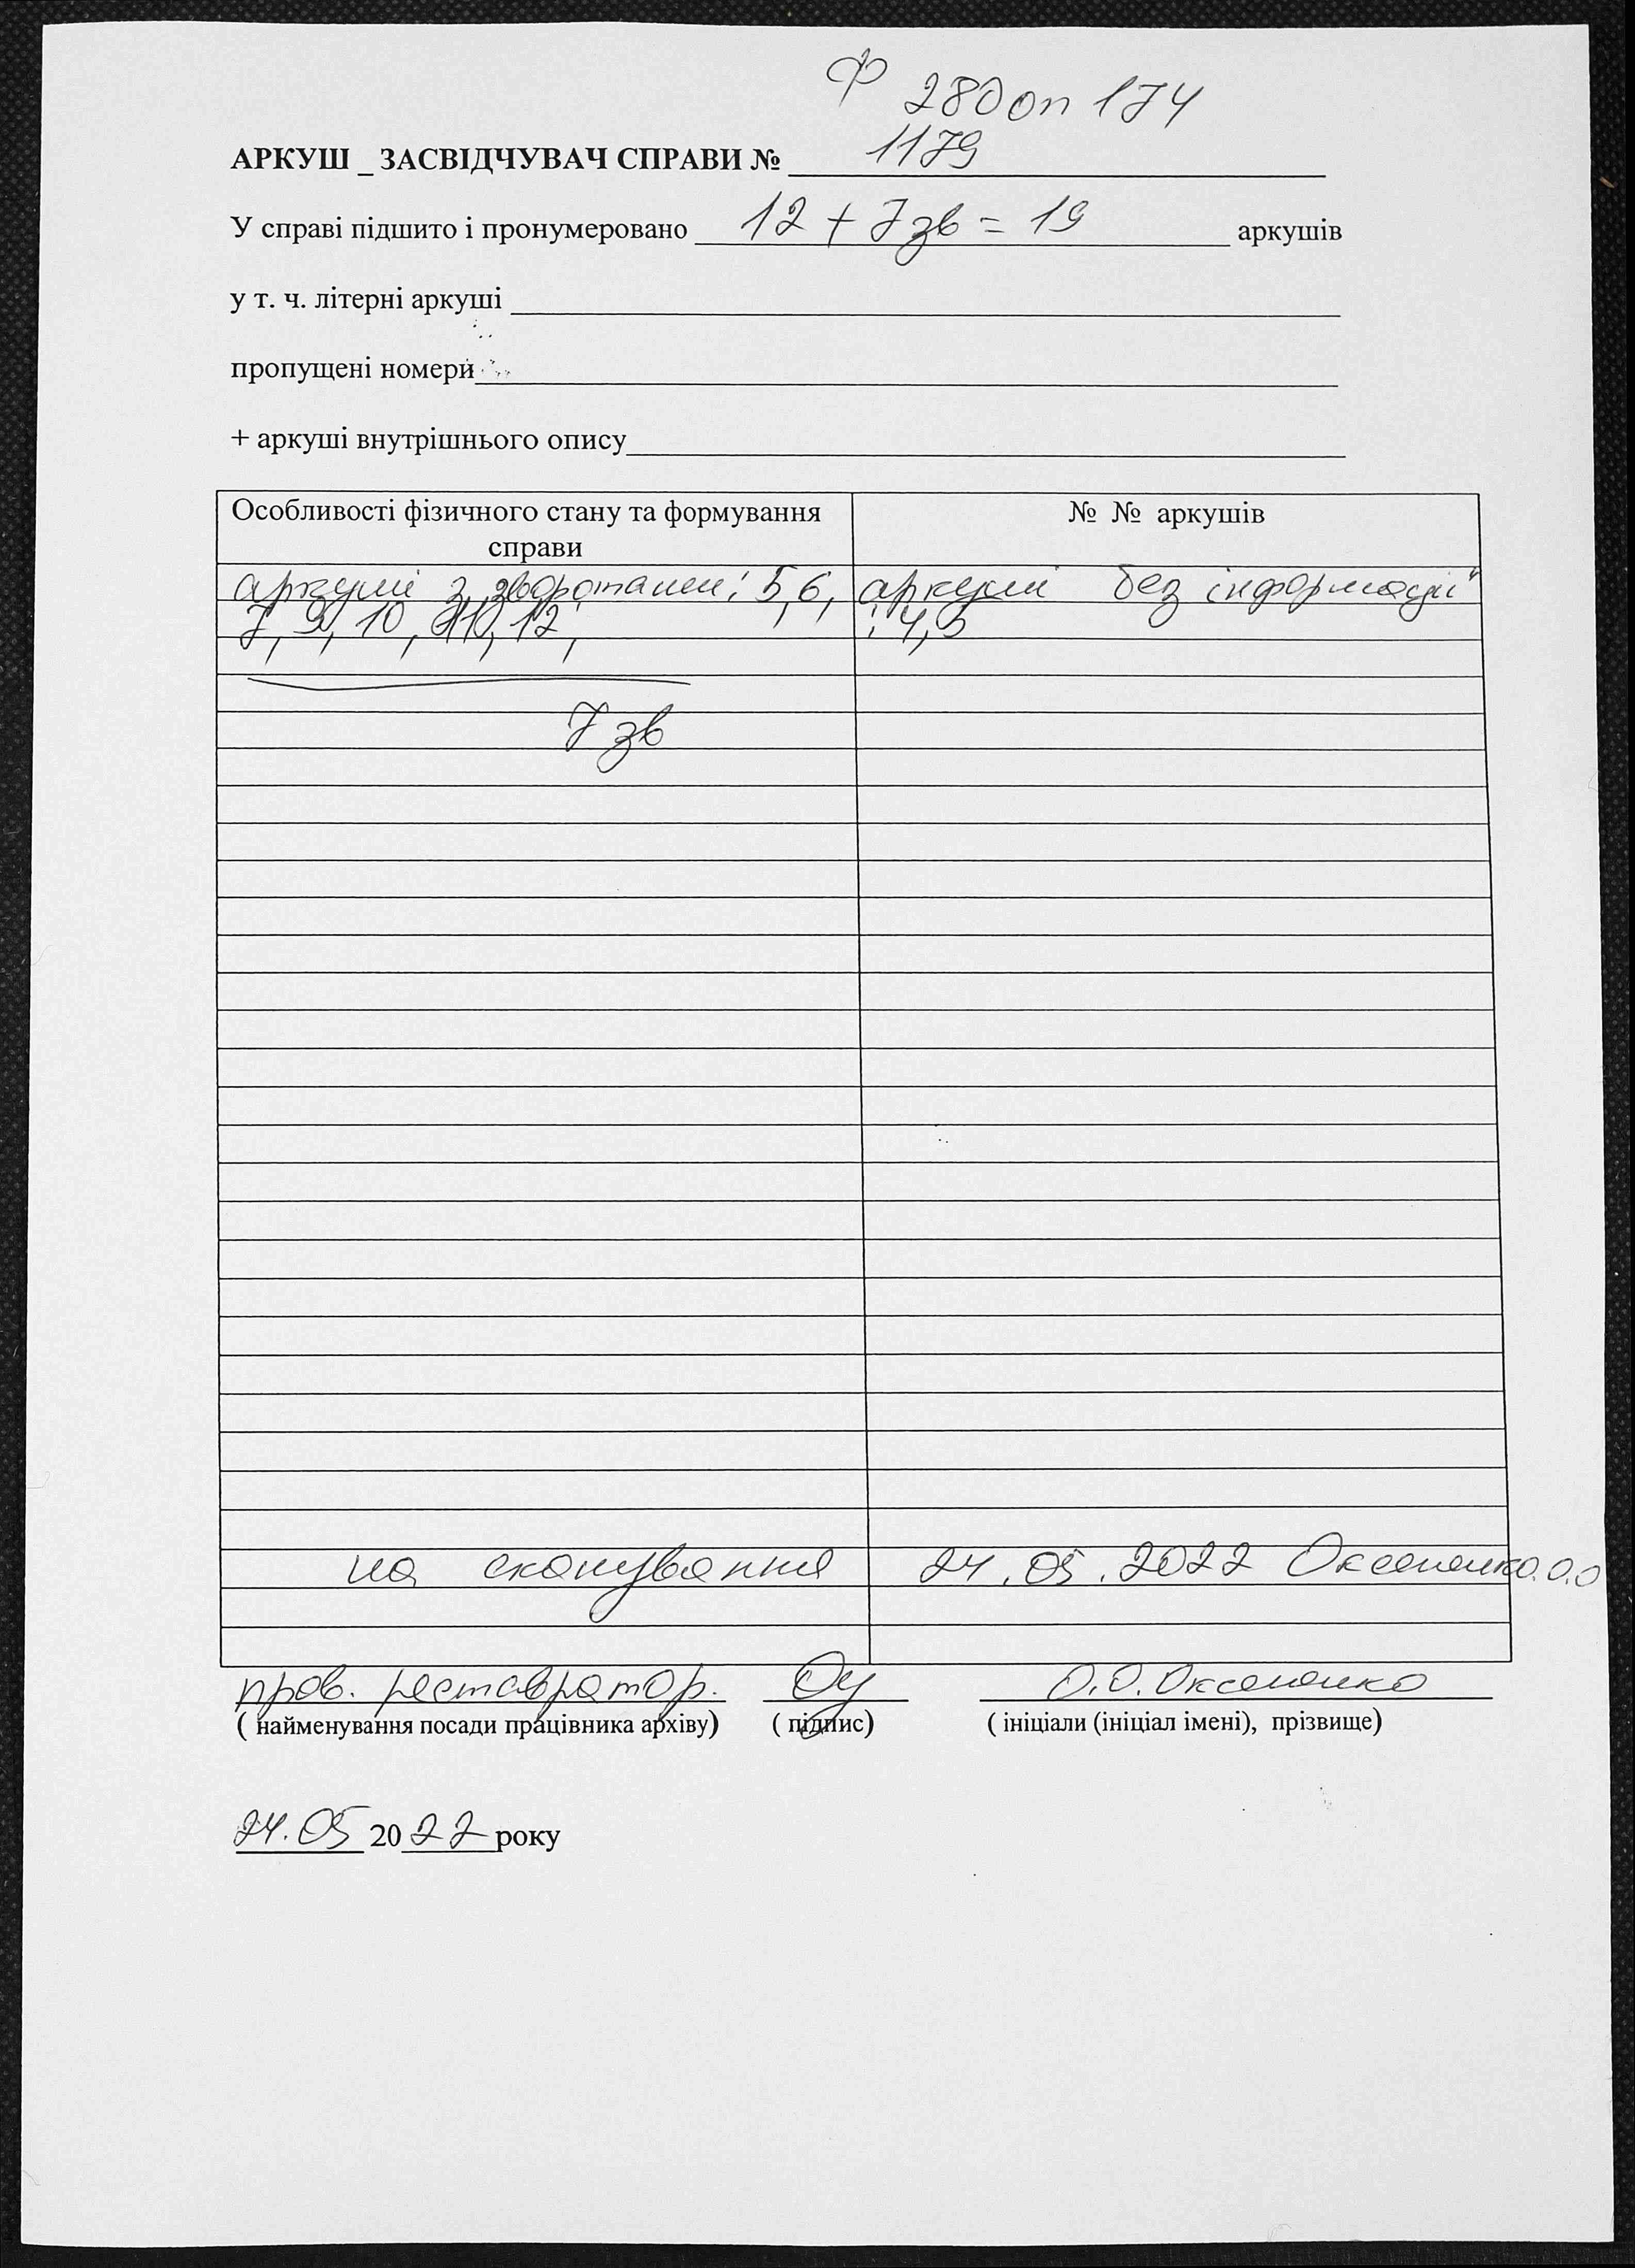 Ф 280 оп 174
АРКУШ _ ЗАСВІДЧУВАЧ СПРАВИ № 1179
У справі підшито і пронумеровано 12 + 7 зв = 19 аркушів
у т. ч. літерні аркуші
пропущені номери
+ аркуші внутрішнього опису
Особливості фізичного стану та формування справи
№ № аркушів
аркуші з зворотами: 5, 6,
7, 9, 10, 11, 12,
аркуші без інформації
: 4,
7 зв
на сканування 24.05.2022 Оксененко.О.О
пров. реставратор. О.О. Оксененко
( найменування посади працівника архіву) ( підпис) ( ініціали (ініціал імені), прізвище)
24.05 2022 року